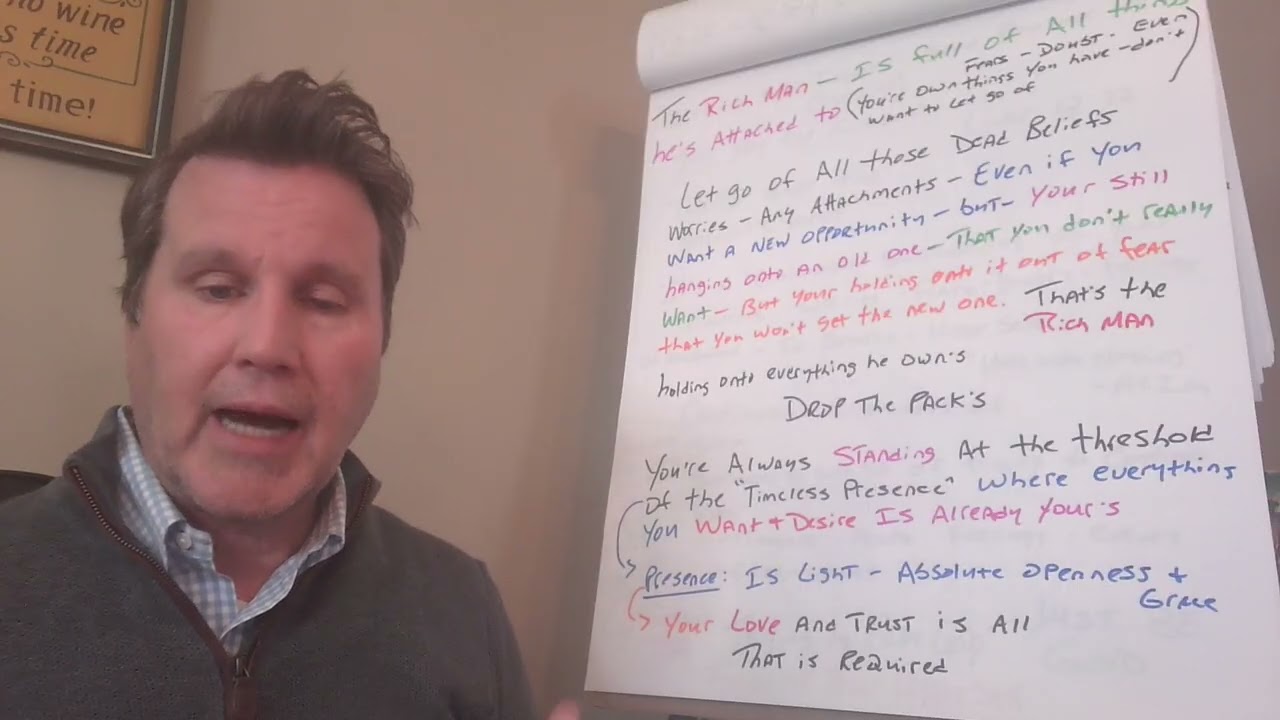 no wine
s time
time!
The Rich Man - Is full of All things
Fears - Doubt - Even
he's Attached to (You're own things you have - don't
want to let go of)
Let go of All those Dead Beliefs
Worries - Any Attachments - Even if You
Want A New Opportunity - but - Your Still
hanging onto an old one - That you don't really
Want - But your holding onto it out of fear
that you won't get the new one. That's the
Rich Man
holding onto everything he own's
Drop The Pack's
You're Always Standing At the threshold
Of the "Timeless Presence" where everything
You Want + Desire Is Already Your's
Presence: Is Light - Absolute Openness +
Grace
Your Love And Trust is All
That is Required